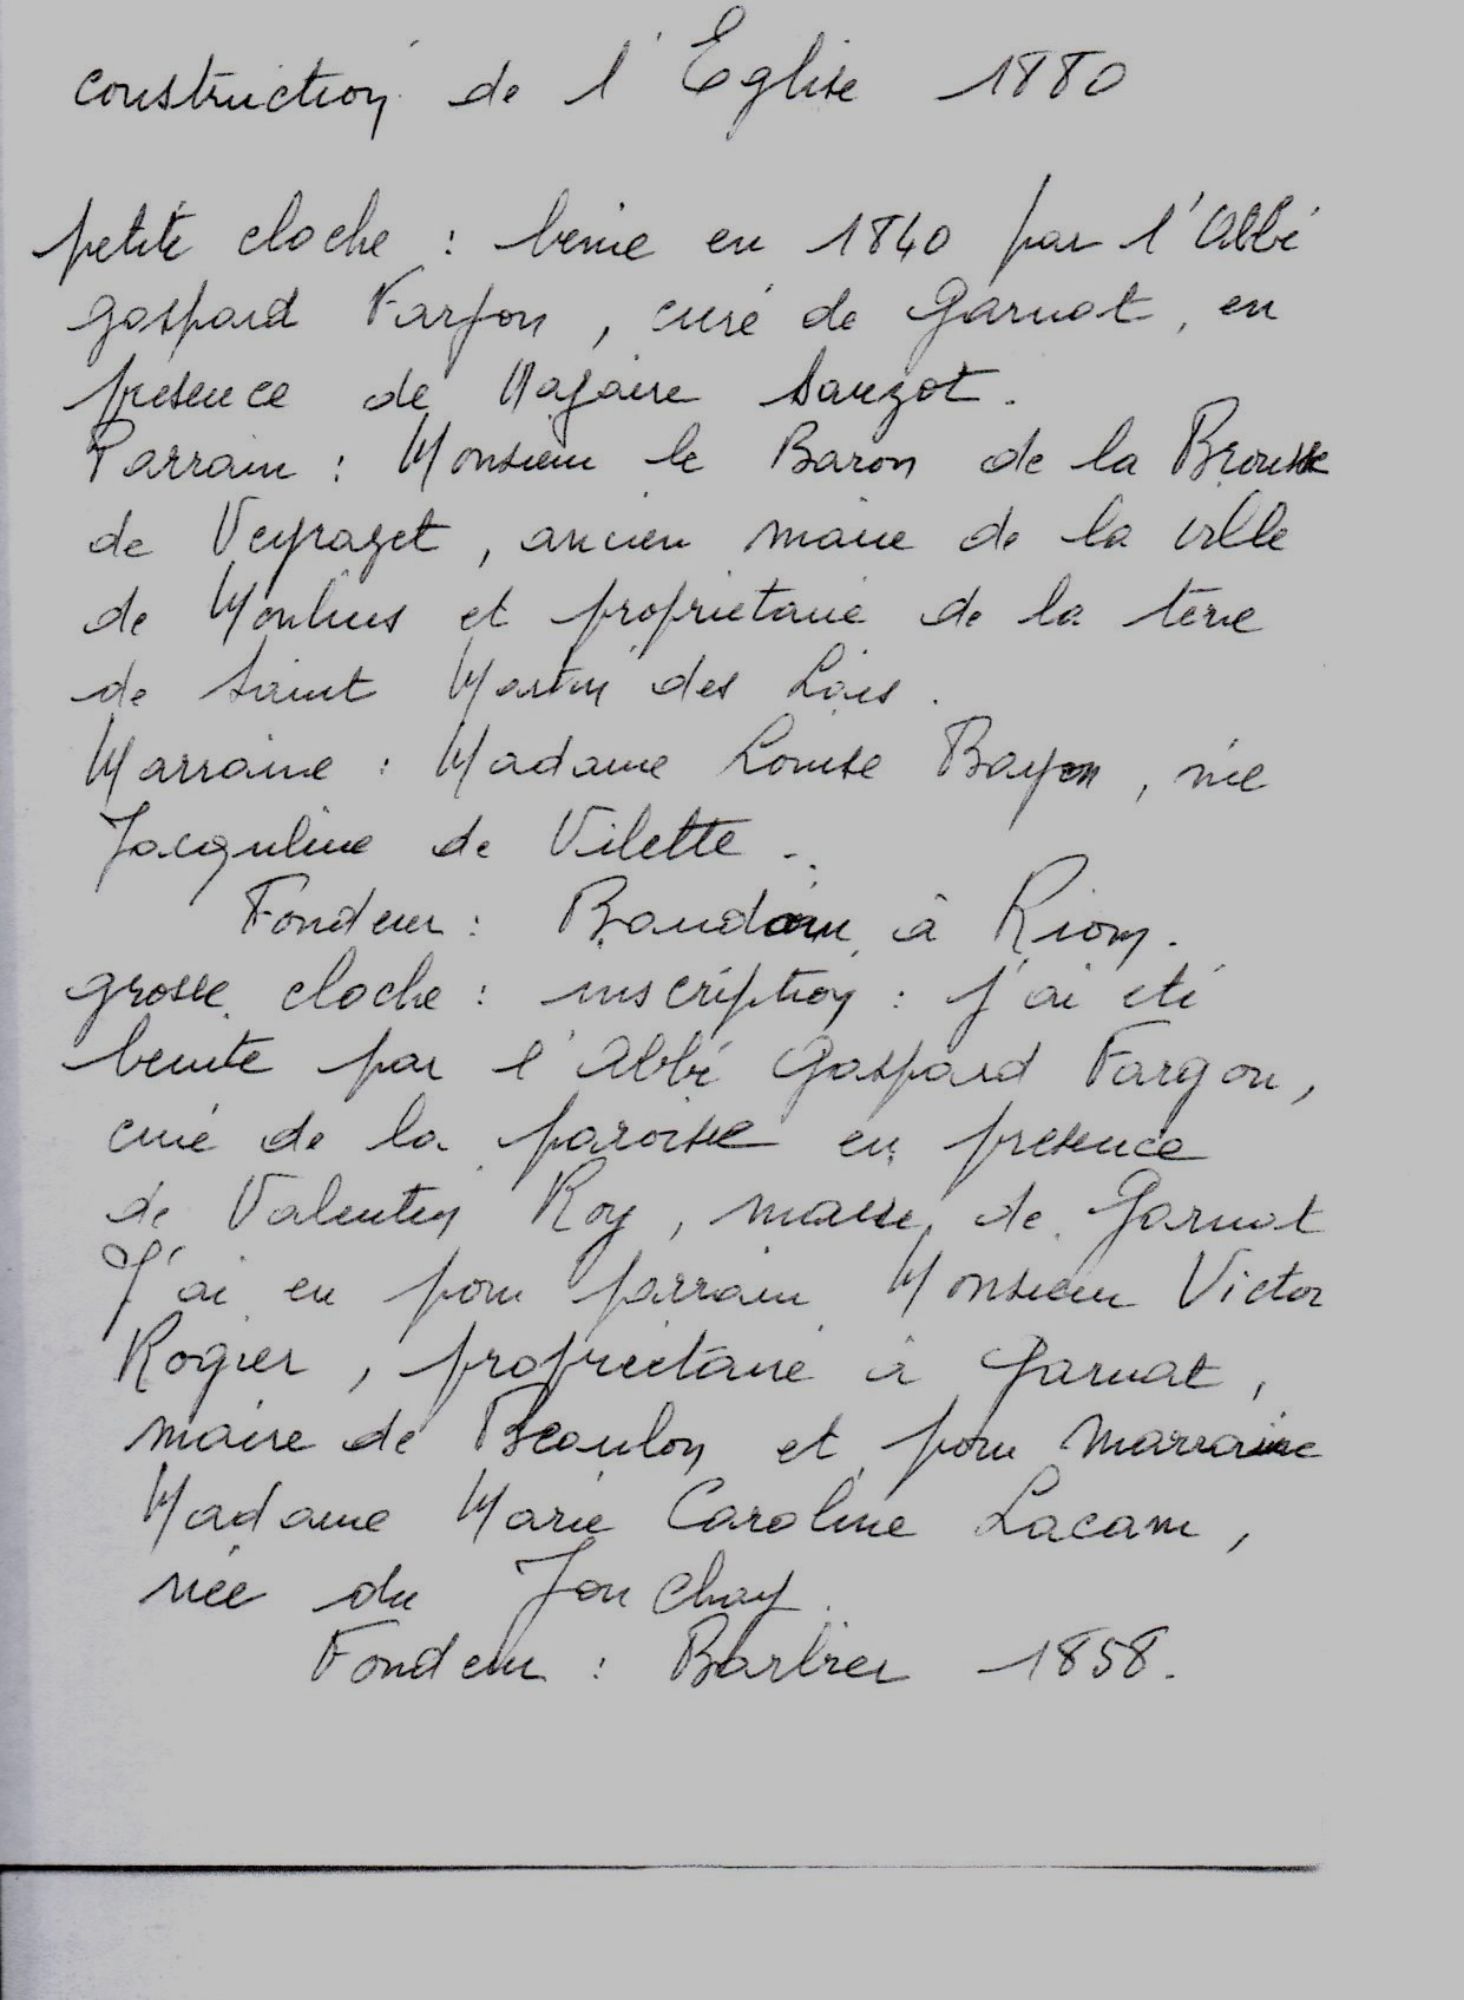 construction de l'Eglise 1880
petite cloche : bénie en 1840 par l'Abbé
gaspard Farjon, curé de Garnat, en
présence de Sauzot.
Parrain : Monsieur le Baron de la Brousse
de Veyrazet, ancien maire de la ville
de Moulins et propriétaire de la terre
de Saint Martin des Lais.
Marraine : Madame Louise Bayon, née
Jacquline de Vilette.
Fondeur : Baudoin à Riom.
grosse cloche : inscription : j'ai été
benite par l'Abbé Gaspard Fargon,
curé de la paroisse en présence
de Valentin Roy, maire de Garnat
J'ai eu pour parrain Monsieur Victor
Rogier, propriétaire à Garnat,
maire de Beaulon et pour marraine
Madame Marie Caroline Lacam,
née du Jonchay.
Fondeur : Barbier 1858.